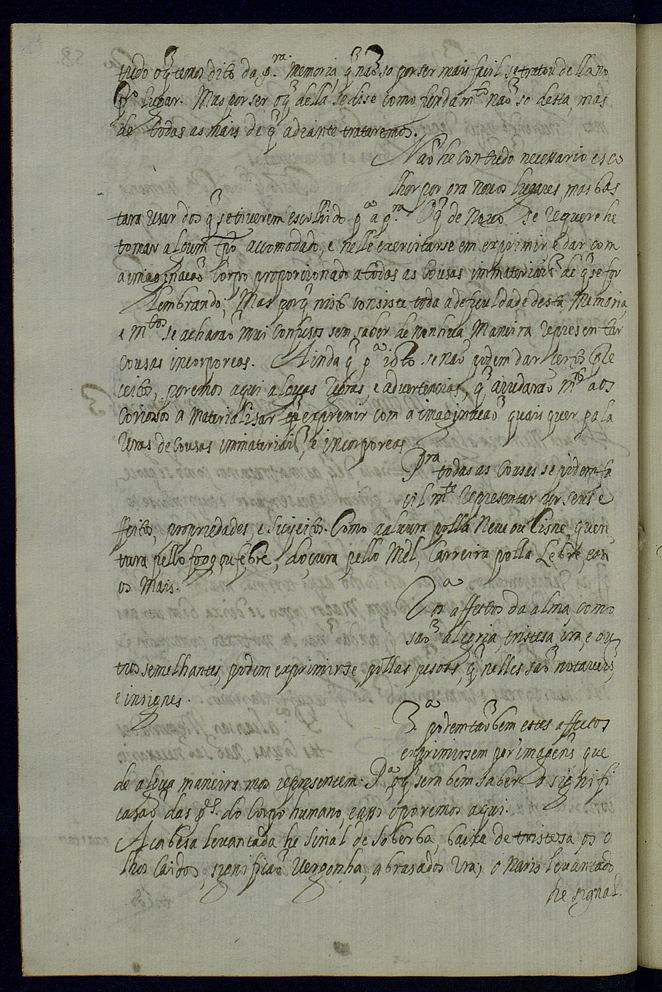 tudo oq̃ temos dito da pra. Memoria, q̃ não so por ser mais facil se tratou della no
pro. lugar. Mas por ser oq̃ della se disse como fundamto. não só desta, mas
de todas as mais de q̃ adiante trataremos.
Não he com tudo necessario esco
lher por ora novos lugares, mas bas
tara usar dos q̃ se tiverem escolhido pa. a pra. Oq̃ de Novo se requere he
tomar algum tp̃o accomodado, e nelle exercitarse em exprimir e dar com
a imaginação Corpo proporcionado a todas as Cousas immateriais de q̃ se for
lembrando, Mas porq̃ nisto consiste toda a deficuldade desta Memoria,
e mtos. se acharão mui confusos sem saber de nenhũa Maneira representar
Cousas incorporeas. Ainda q̃ pa. isto se não podem dar certos pre
ceitos, poremos aqui algũas regras e advertencias, q̃ ajudarão mto. aos
Coriosos a Materialisar e exprimir com a imaginação quais quer pala
vras de cousas immateriais, e incorporeas
Pra. todas as Cousas se podem fa
cilmte. representar por seus e
ffeitos, propriedades, e sujeitos. Como a alvura pella Neve ou Cisne, quen
tura pello fogo ou febre, doçura pello Mel, Carreira pella Lebre, e an
os Mais.
2a. Os affectos da alma, como
são alegria, tristesa, ira, e ou
tros semelhantes, podem exprimirse pellas pesoas, q̃ nelles são notaveis
e insignes.
3a. podem tãobem estes affectos
exprimirsem por imagens que
de algũa maneira nos representem. Pa. oq̃ sera bem saber a signifi
cação das ptes. do Corpo humano, q̃ poremos aqui.
A cabesa levantada he sinal de soberba, baixa de tristesa, os o
lhos Caidos, significão Vergonha, abrasados Ira; o Naris levantado
he signal.